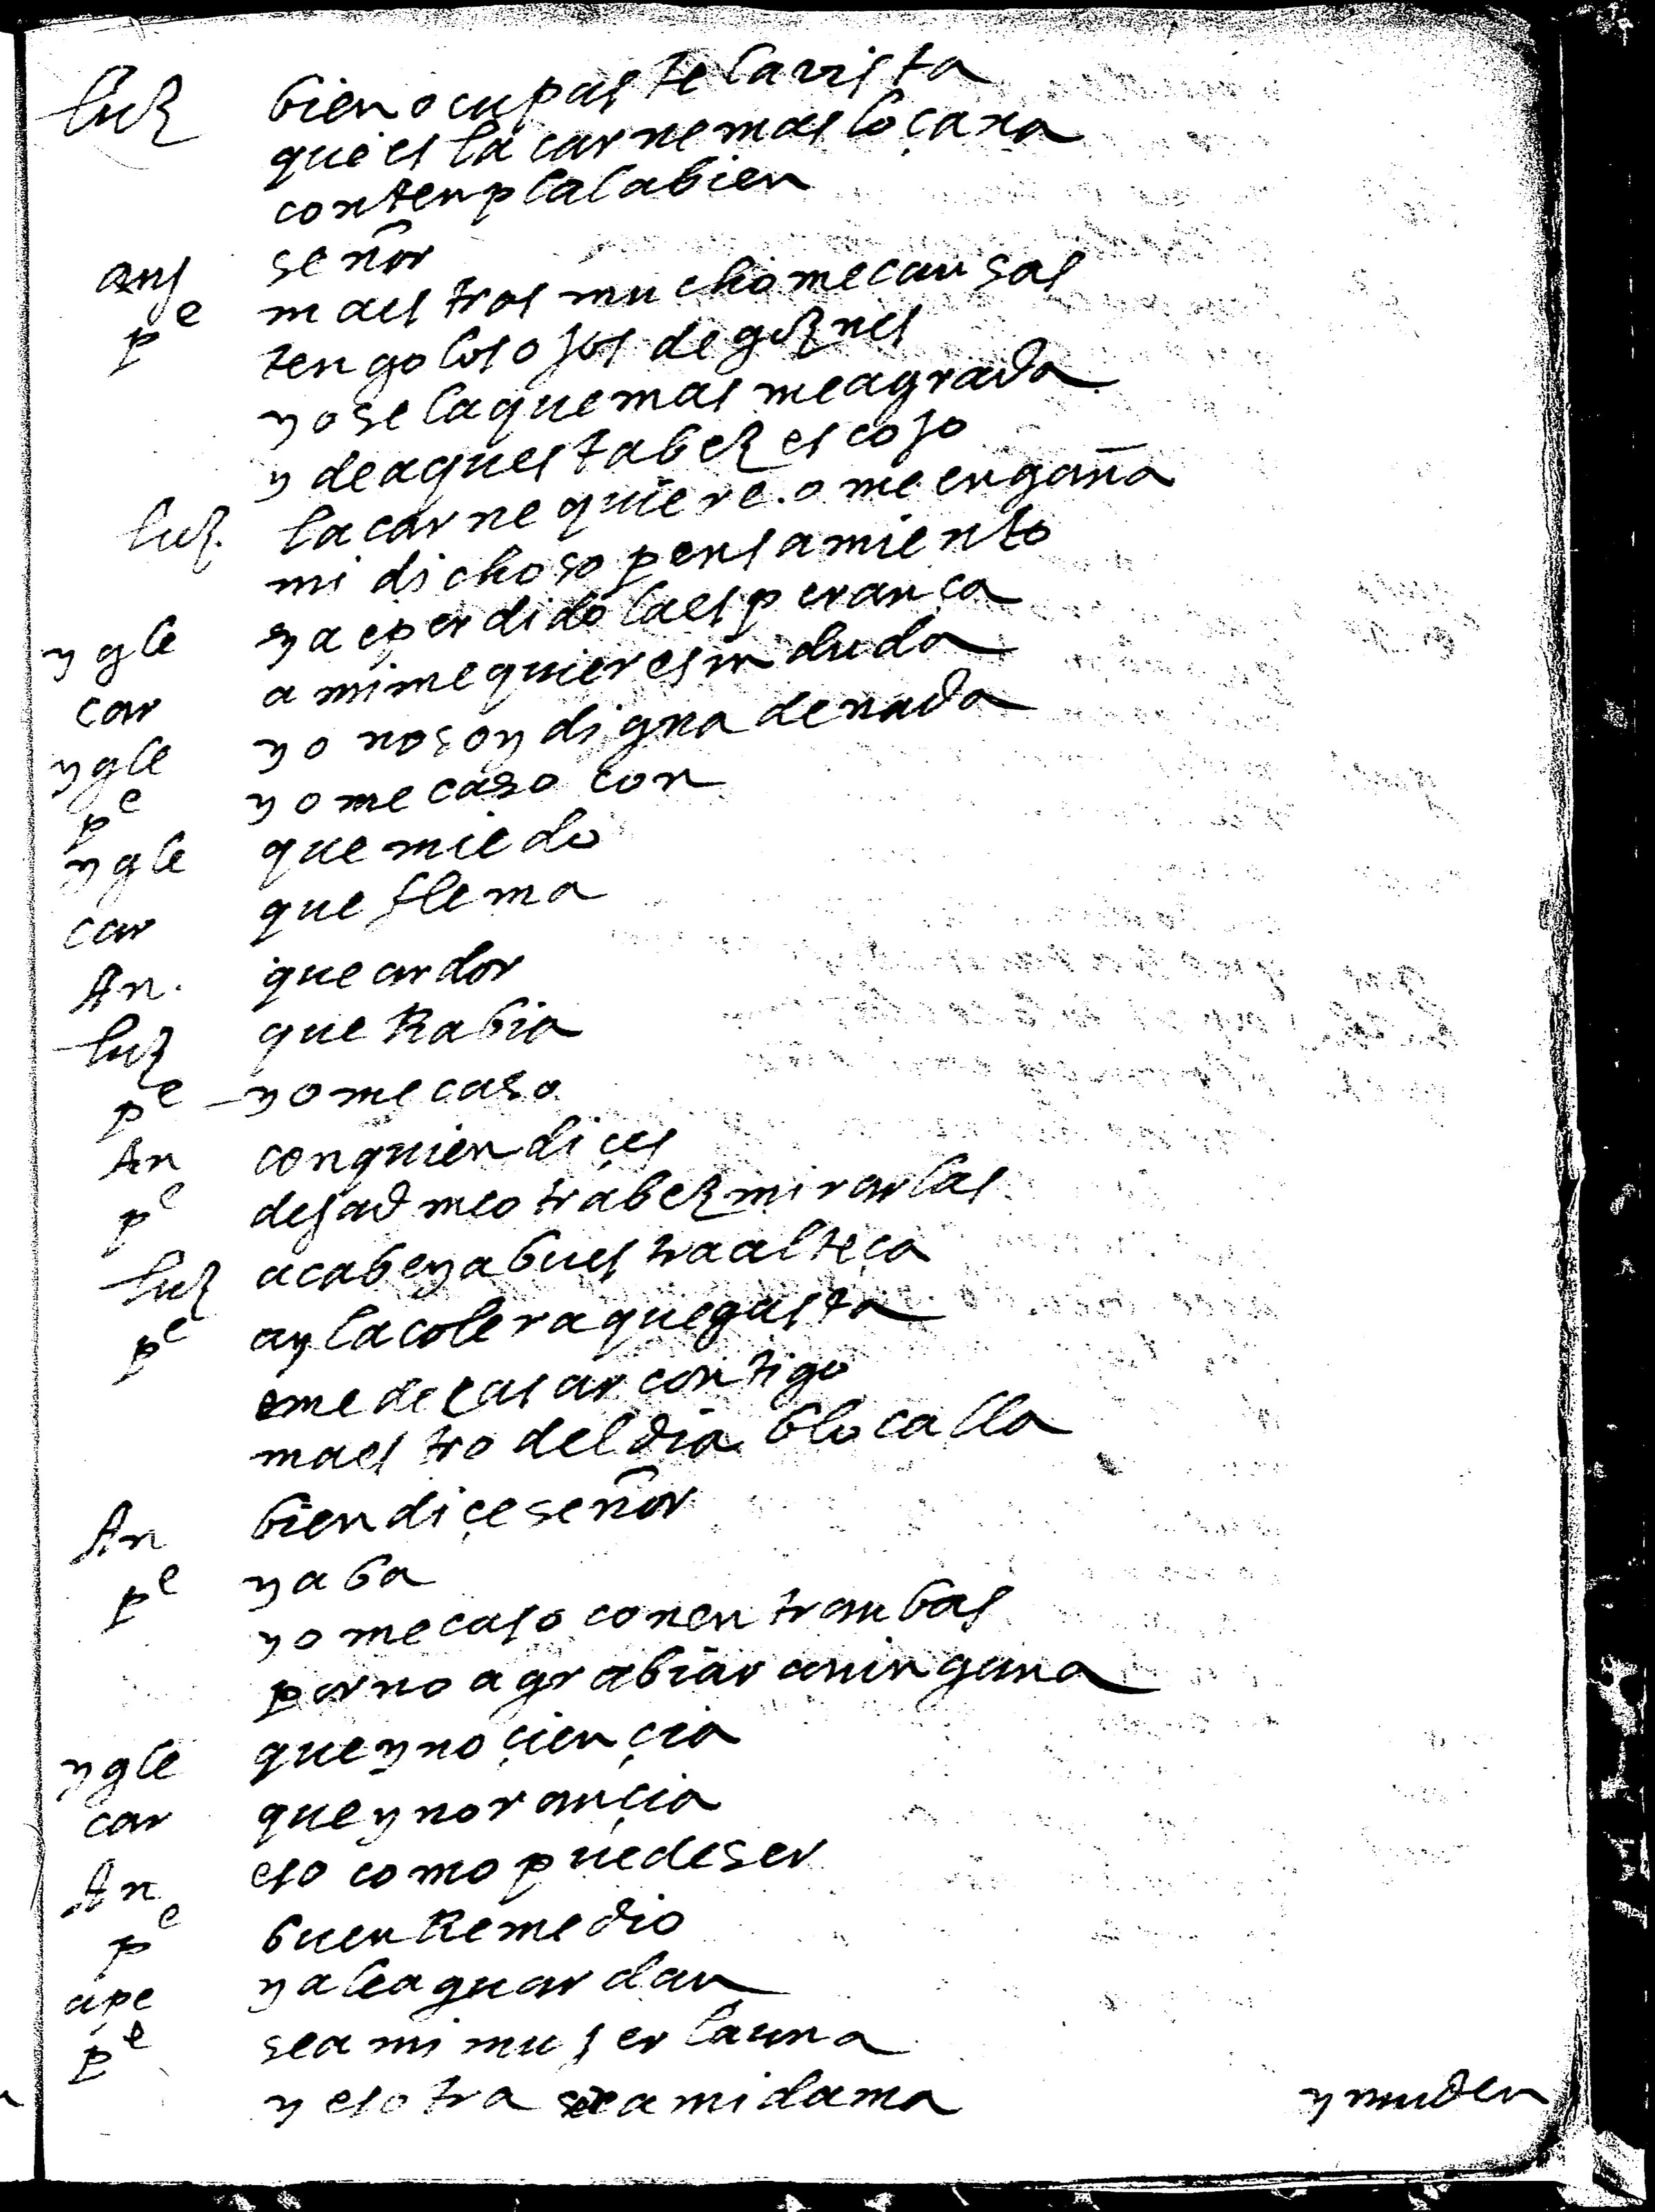 luz bien ocupaste la vista
que es la carne mas loçana
contenplala bien
ang señor
pe maestros mucho me cansas
tengo los ojos de guznes
yo se la que mas me agrada
y de aquesta bez escojo
luz. la carne quiere. o me engaña
mi dichoso pensamiento
ygle ya e perdido la esperança
car a mi me quiere sin duda
ygle yo no soy digna de nada
pe yo me caso con
ygle que miedo
car que flema
An. que ardor
luz que Rabia
pe yo me caso
An con quien diçes
pe dejadme otra bez mirarlas
luz acabe ya buestra alteça
pe ay la colera que gasta
eme de casar contigo
maestro del diablo calla
An bien diçe señor
pe ya ba
yo me caso con entranbas
por no agrabiar a ninguna
ygle que ynoçiençia
car que ynorançia
An eso como puede ser
pe buen Remedio
ape ya le aguardan
pe sea mi mujer la una
y esotra sea mi dama
y muden